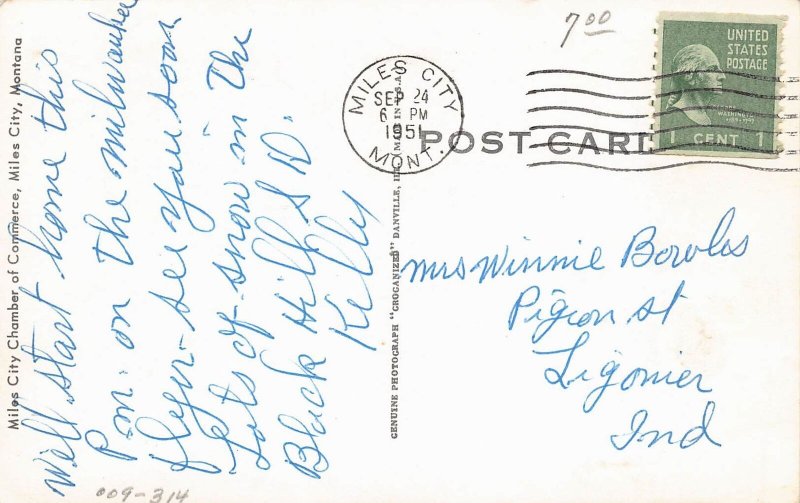 Miles City Chamber of Commerce, Miles City, Montana
Well start home this
P.m. on the milwaukee
flyer - see you soon
Lots of snow in the
Black Hills S.D.
Kelly
009-314
GENUINE PHOTOGRAPH "GROGANIZED" DANVILLE, MADE IN U.S.A.
7.00
MILES CITY
SEP 24
6 PM
1951
MONT.
POST CARD
UNITED
STATES
POSTAGE
WASHINGTON
1 CENT 1
Mrs Winnie Bowles
Pigeon St
Ligonier
Ind